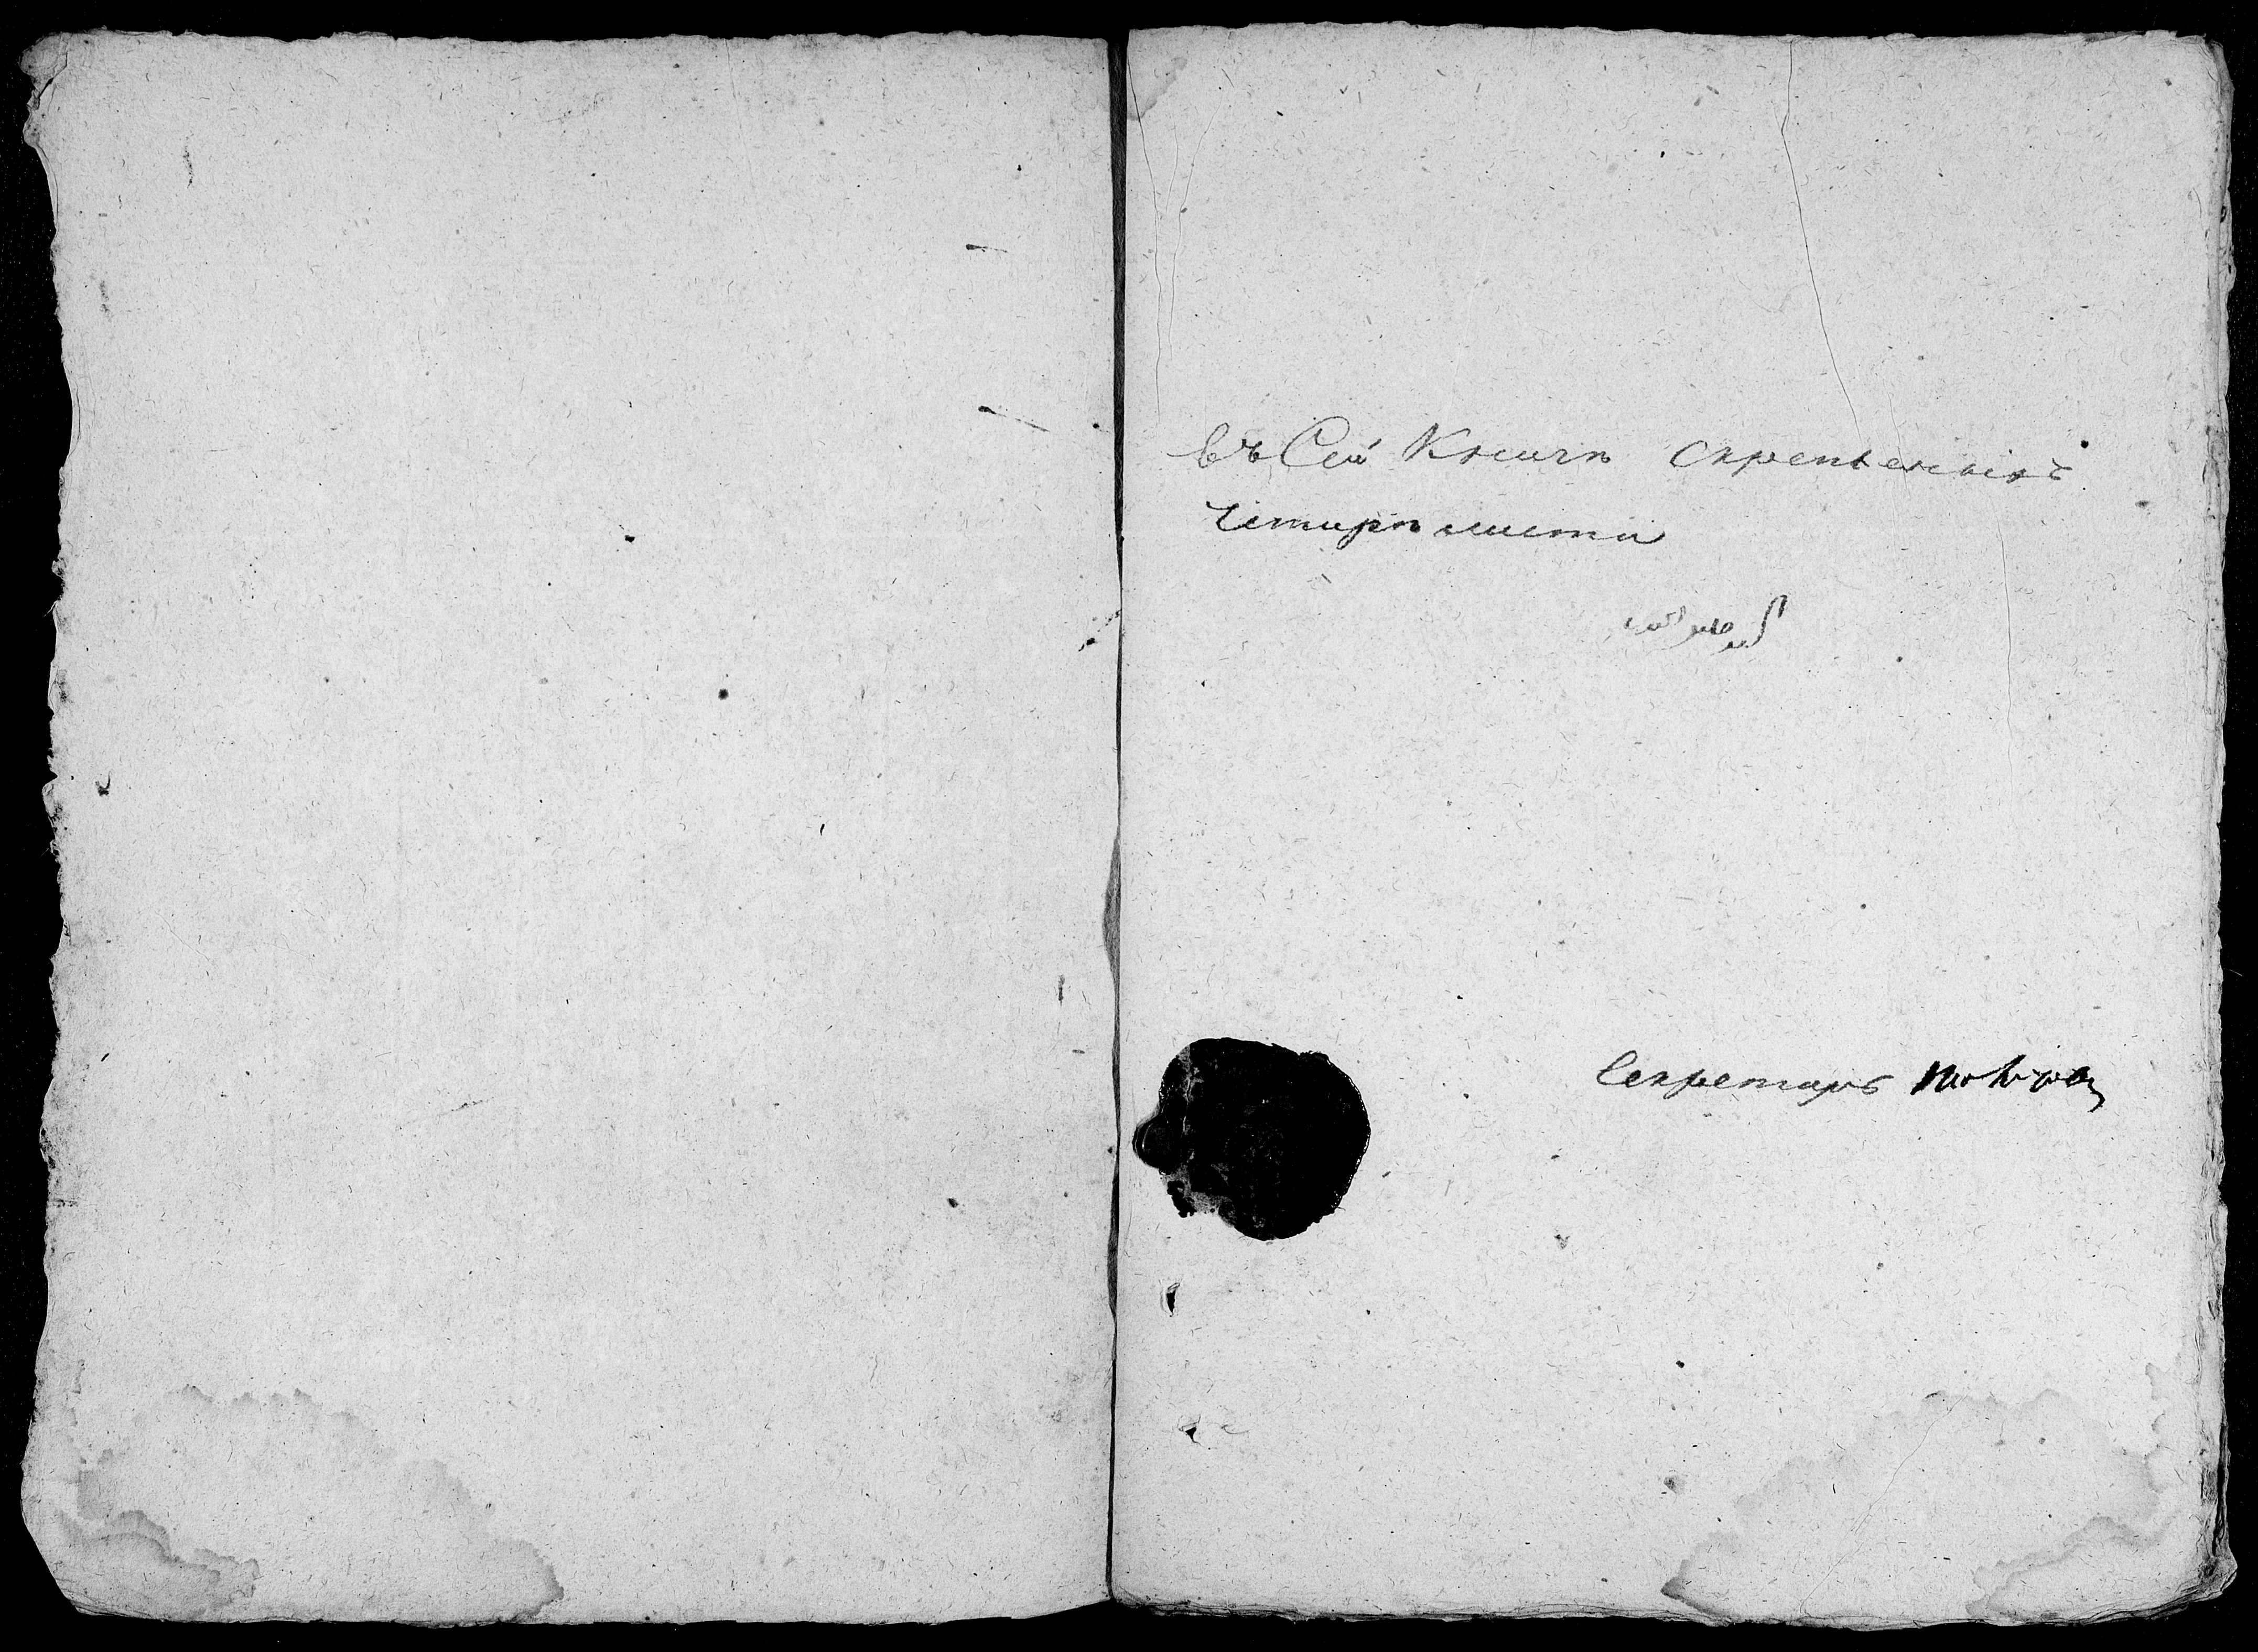 въ Сей Книгѣ скрепленныхъ
Четирѣ листа
Секретарь